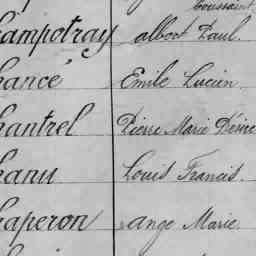 Toussaint
hampotray Albert Paul.
hancé Emile Lucien.
hantrel Pierre Marie Désiré
hanu Louis Francis.
haperon Ange Marie.